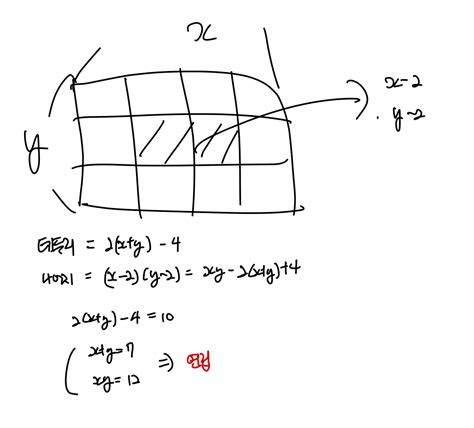 x
x-2
y-2
y
테두리 = 2(x+y) - 4
나머지 = (x-2)(y-2) = xy - 2(x+y)+4
2(x+y) - 4 = 10
x+y=7
xy = 12
⇒